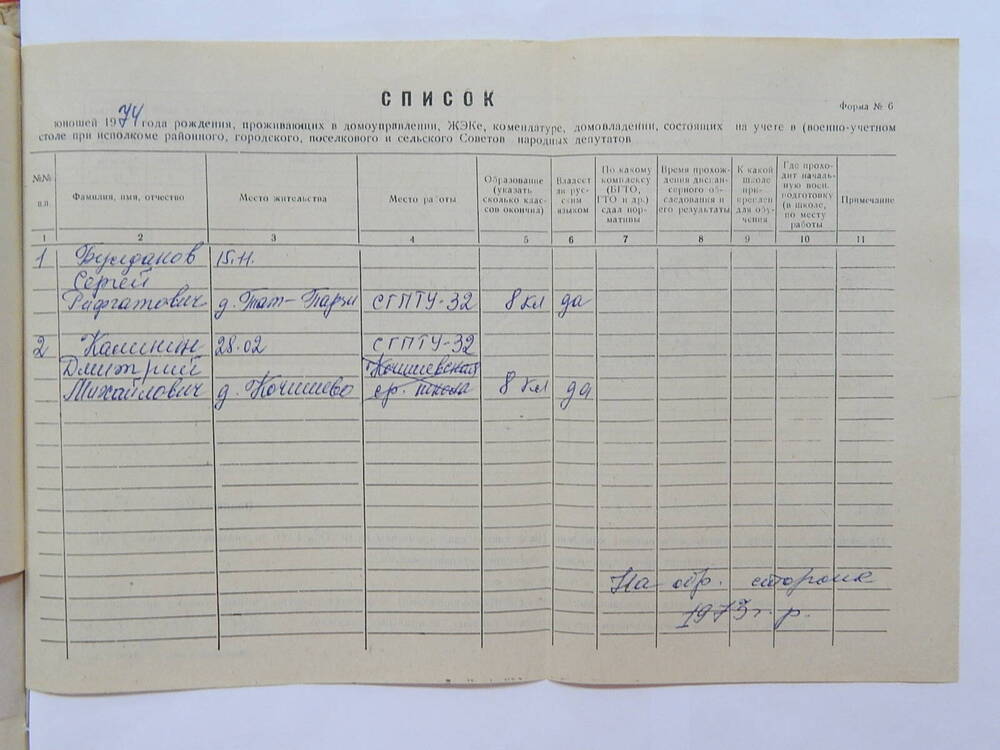 СПИСОК
Форма № 6
юношей 1974 года рождения, проживающих в домоуправлении, ЖЭКе, комендатуре, домовладении, состоящих на учете в (военно-учетном
столе при исполкоме районного, городского, поселкового и сельского Советов народных депутатов
№№ п.п.
Фамилия, имя, отчество
Место жительства
Место работы
Образование (указать сколько классов окончил)
Владеет ли русским языком
По какому комплексу (БГТО, ГТО и др.) сдал нормативы
Время прохождения диспансерного обследования и его результаты
К какой школе прикреплен для обучения
Где проходит начальную воен. подготовку (в школе, по месту работы
Примечание
1 2 3 4 5 6 7 8 9 10 11
1 15.11.
Сергей
Рифгатович д. Тат-Парзи СГПТУ-32 8 кл да
2 Калинин 28.02 СГПТУ-32
Дмитрий Кочишевская
Михайлович д. Кочишево ср. школа 8 кл да
На обр. стороне
1973 г. р.